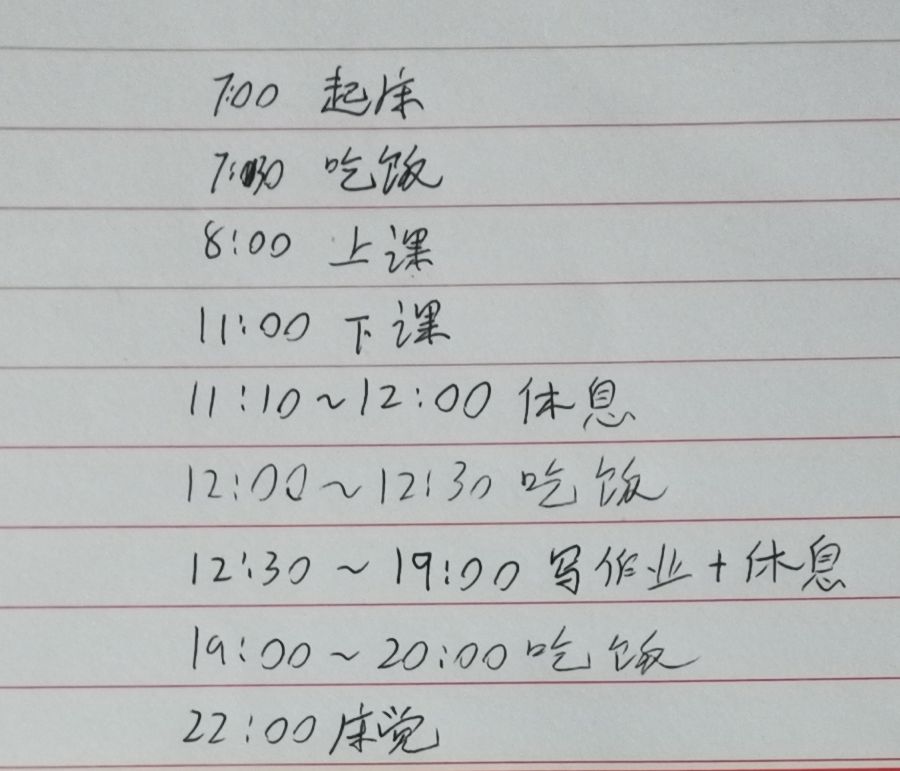 7:00 起床
7:30 吃饭
8:00 上课
11:00 下课
11:10~12:00 休息
12:00~12:30 吃饭
12:30~19:00 写作业+休息
19:00~20:00 吃饭
22:00 床觉